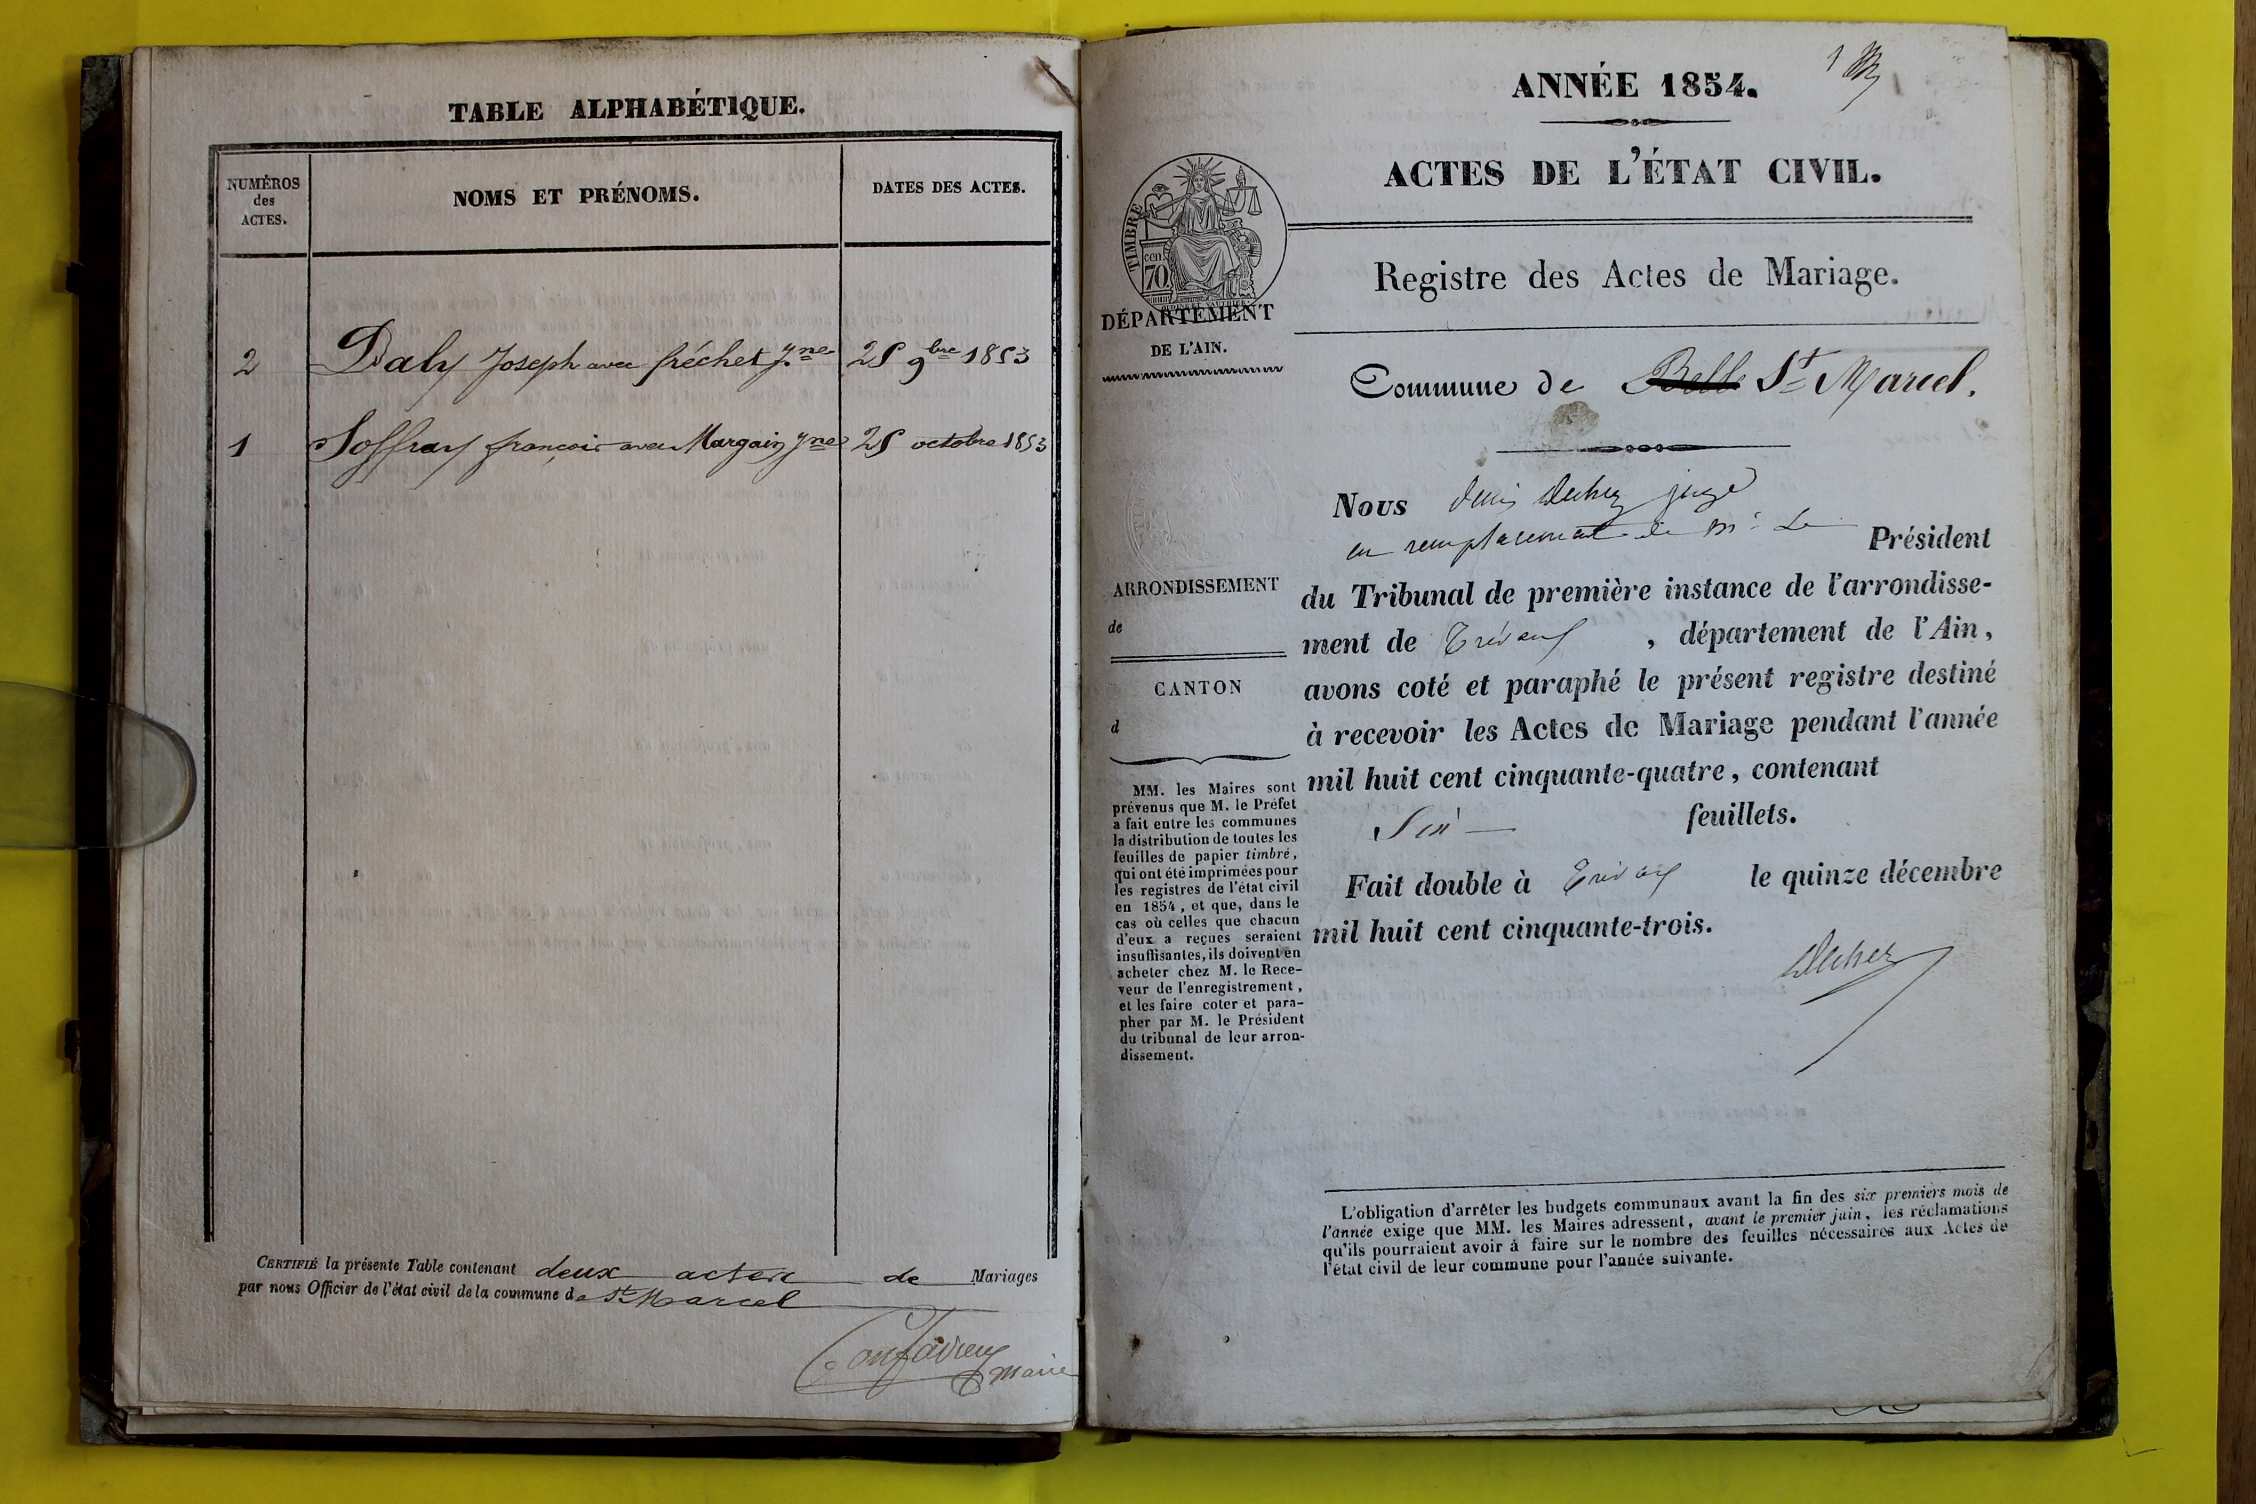 TABLE ALPHABÉTIQUE.
NUMÉROS
des
ACTES.
NOMS ET PRÉNOMS.
DATES DES ACTES.
2 Daly Joseph avec fréchet Jne 25 9bre 1853
1 Joffray françois avec Margain Jne 25 octobre 1853
CERTIFIÉ la présente Table contenant deux actes de Mariages
par nous Officier de l'état civil de la commune de St Marcel
maire
1
ANNÉE 1854.
ACTES DE L'ÉTAT CIVIL.
TIMBRE
cen.
70
DÉPARTEMENT
DE L'AIN.
Registre des Actes de Mariage.
Commune de Belle St Marcel.
Nous Denis juge
en remplacement de Mr Le Président
du Tribunal de première instance de l'arrondisse-
ment de Trévoux, département de l'Ain,
avons coté et paraphé le présent registre destiné
à recevoir les Actes de Mariage pendant l'année
mil huit cent cinquante-quatre, contenant
Six feuillets.
Fait double à Trévoux le quinze décembre
mil huit cent cinquante-trois.
ARRONDISSEMENT
de
CANTON
d
MM. les Maires sont
prévenus que M. le Préfet
a fait entre les communes
la distribution de toutes les
feuilles de papier timbré,
qui ont été imprimées pour
les registres de l'état civil
en 1854, et que, dans le
cas où celles que chacun
d'eux a reçues seraient
insuffisantes, ils doivent en
acheter chez M. le Rece-
veur de l'enregistrement,
et les faire coter et para-
pher par M. le Président
du tribunal de leur arron-
dissement.
L'obligation d'arrêter les budgets communaux avant la fin des six premiers mois de
l'année exige que MM. les Maires adressent, avant le premier juin, les réclamations
qu'ils pourraient avoir à faire sur le nombre des feuilles nécessaires aux Actes de
l'état civil de leur commune pour l'année suivante.